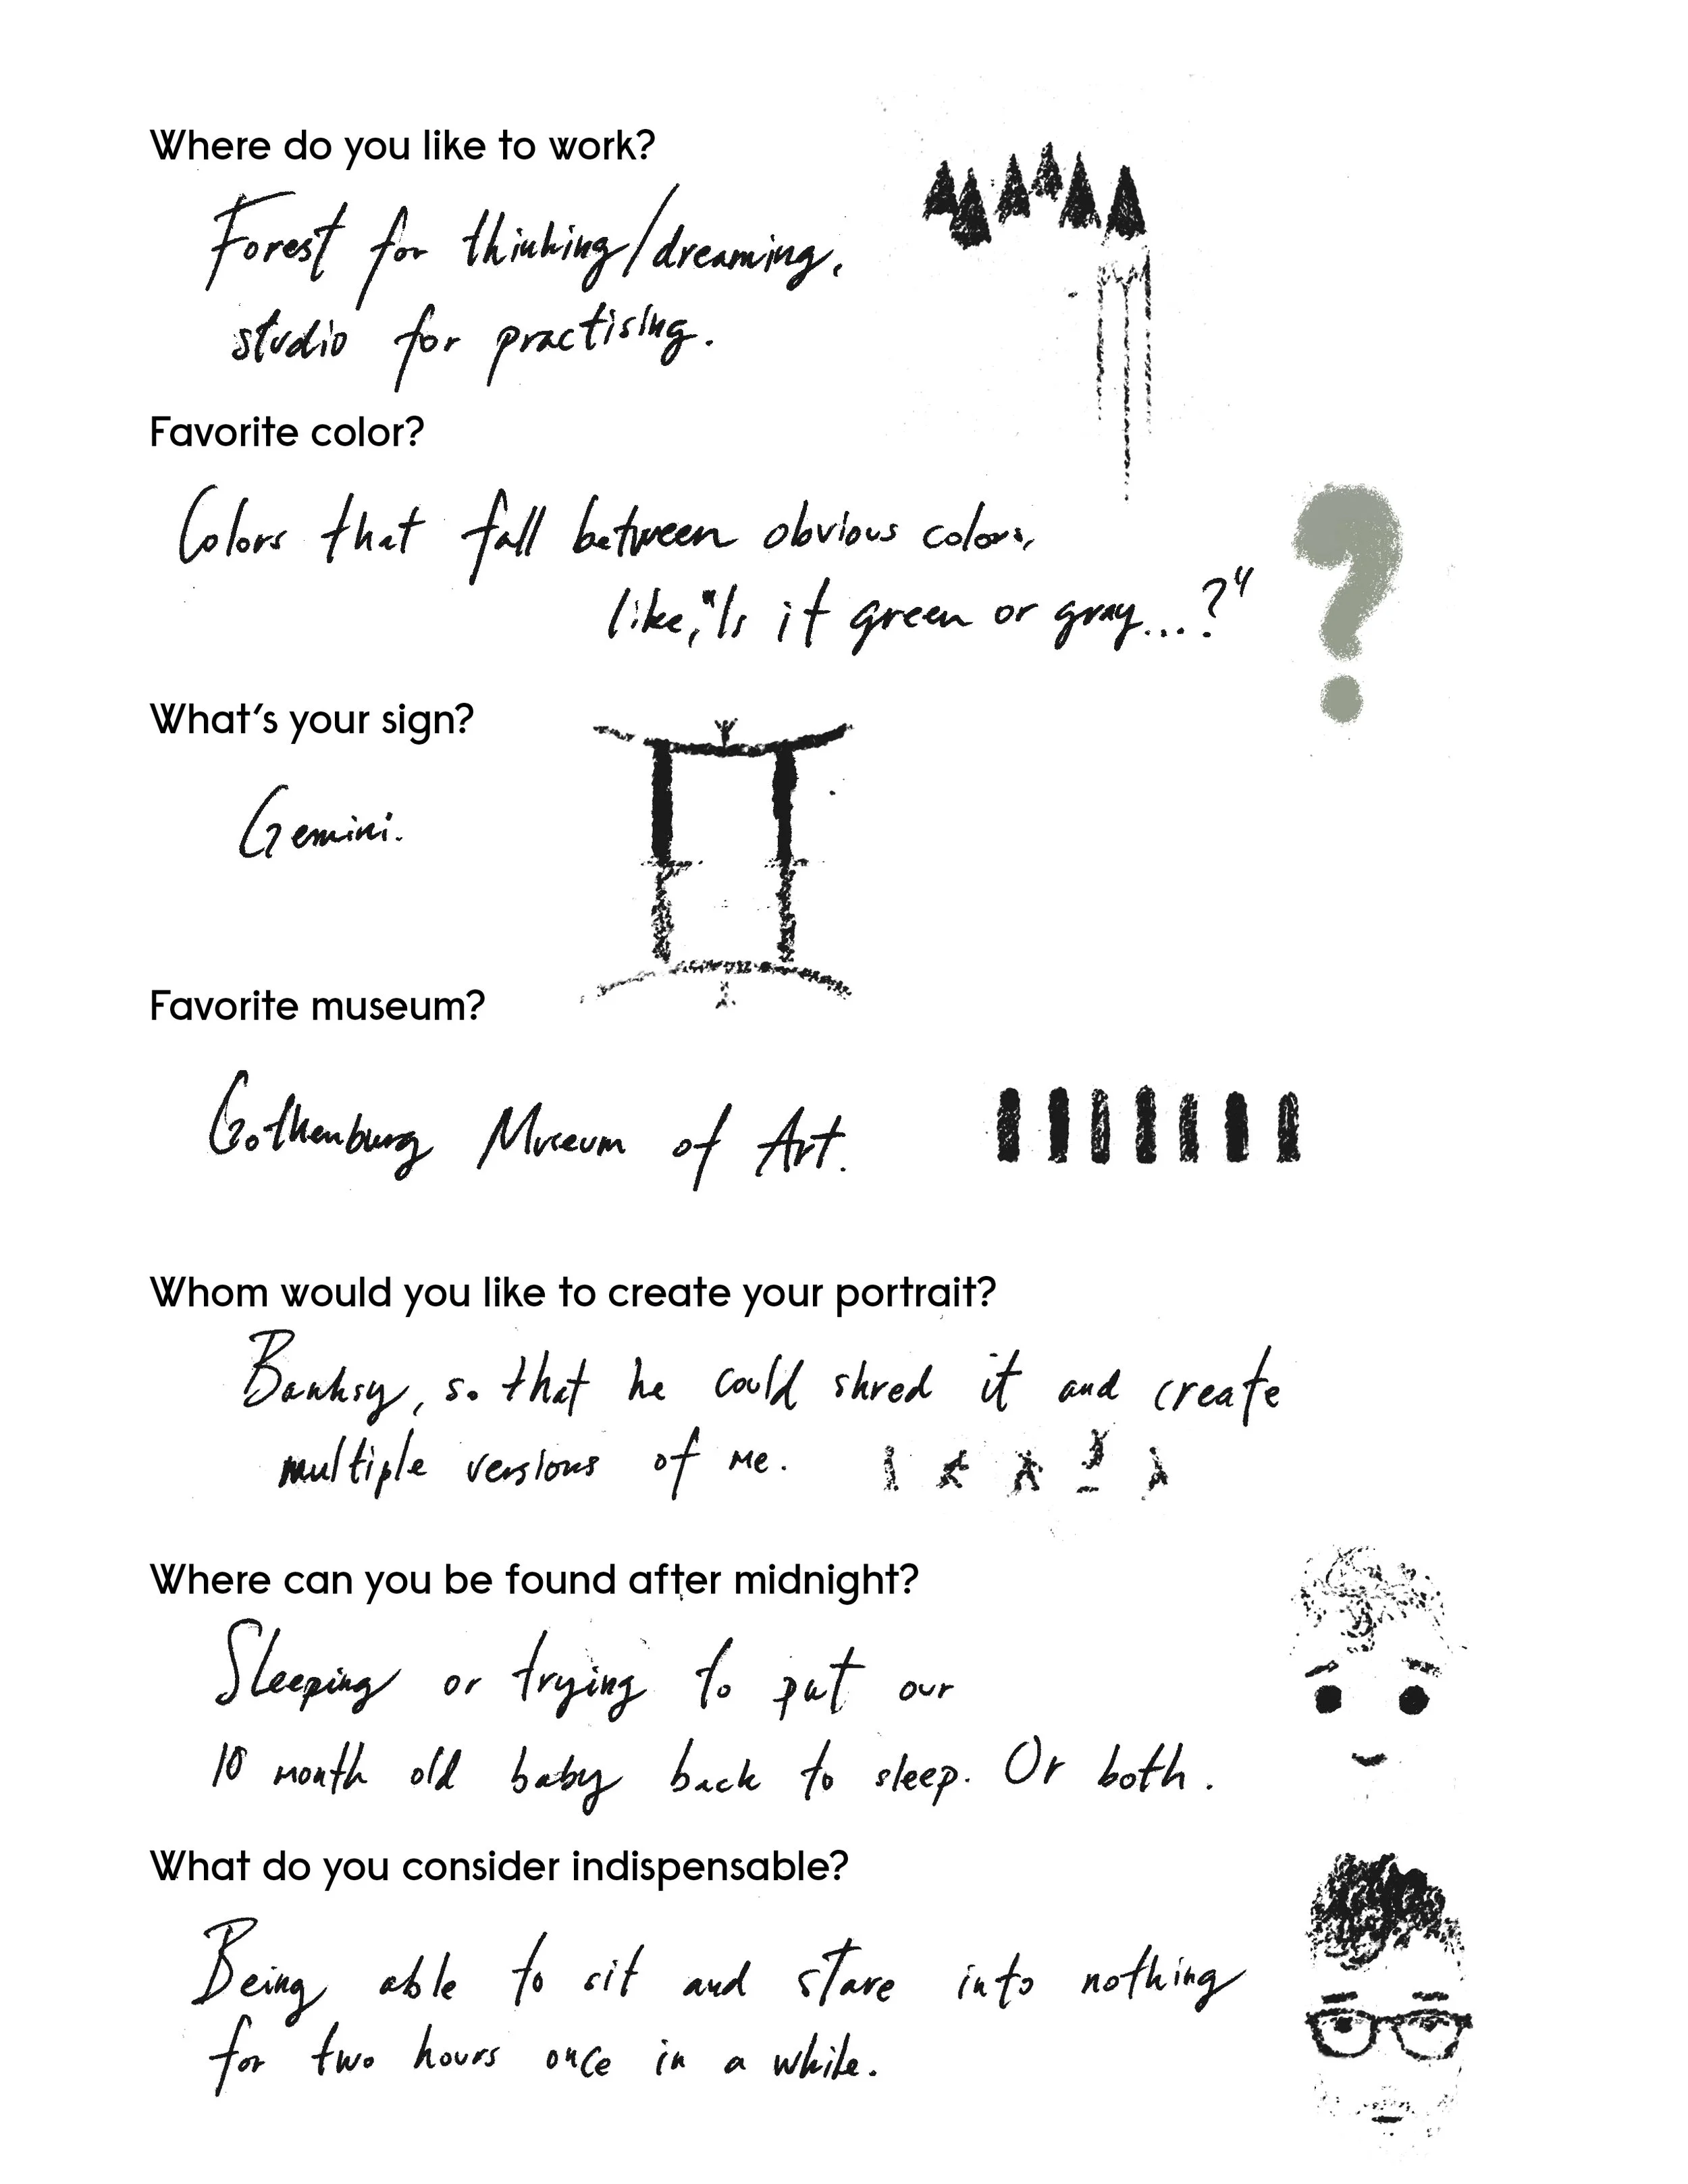 Where do you like to work?
Forest for thinking/dreaming,
studio for practising.
Favorite color?
Colors that fall between obvious colors,
like, "Is it green or gray...?"
What's your sign?
Gemini.
Favorite museum?
Gothenburg Museum of Art.
Whom would you like to create your portrait?
Banksy, so that he could shred it and create
multiple versions of me.
Where can you be found after midnight?
Sleeping or trying to put our
10 month old baby back to sleep. Or both.
What do you consider indispensable?
Being able to sit and stare into nothing
for two hours once in a while.